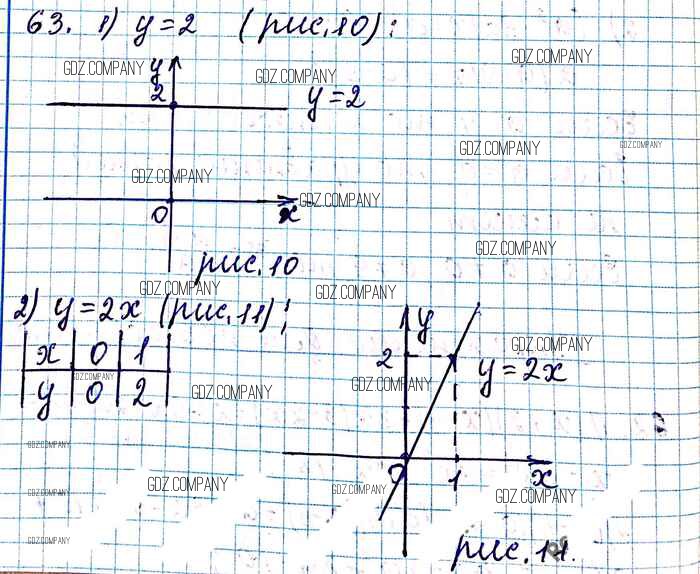 63. 1) y=2 (рис.10):
GDZ.COMPANY
GDZ.COMPANY
GDZ.COMPANY
y
2
y=2
GDZ.COMPANY
GDZ.COMPANY
GDZ.COMPANY
GDZ.COMPANY
0
x
GDZ.COMPANY
рис.10
GDZ.COMPANY
GDZ.COMPANY
2) y=2x (рис.11);
x 0 1
y 0 2
GDZ.COMPANY
GDZ.COMPANY
y
2
GDZ.COMPANY
y=2x
GDZ.COMPANY
GDZ.COMPANY
0
1
x
GDZ.COMPANY
GDZ.COMPANY
GDZ.COMPANY
GDZ.COMPANY
GDZ.COMPANY
рис.11.